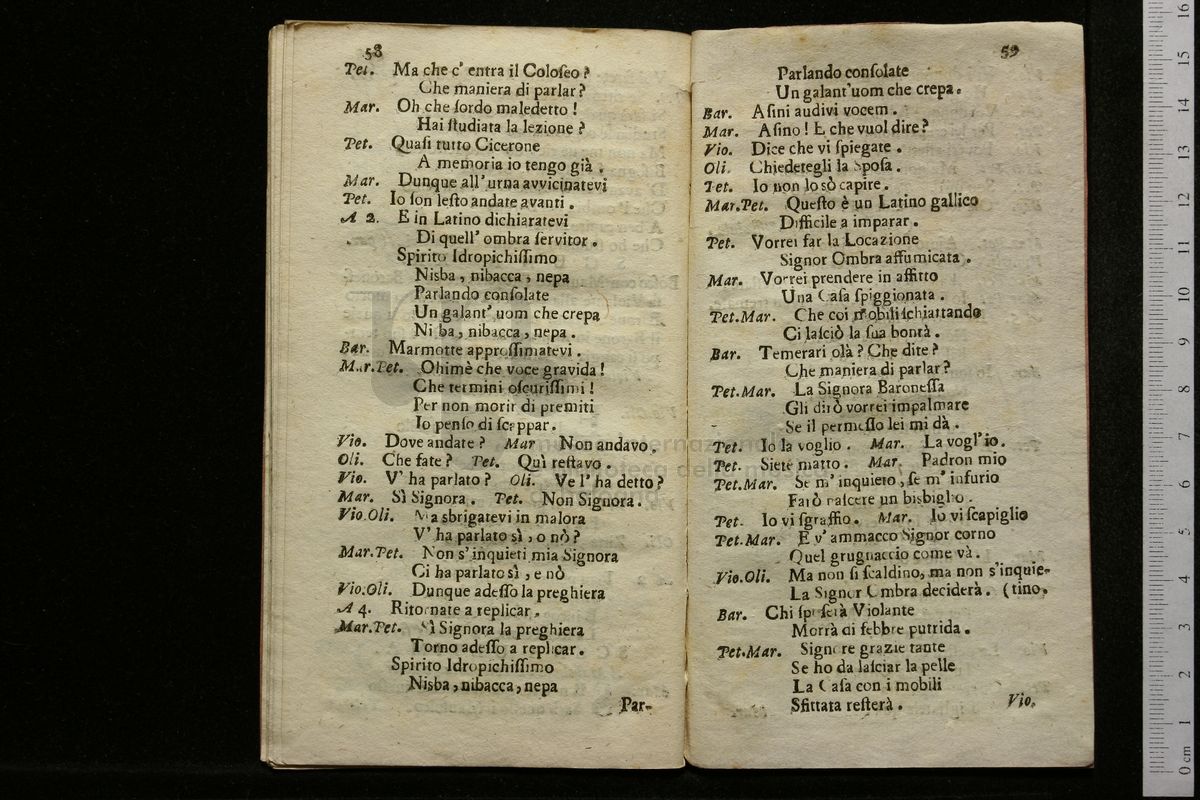 58
Pet. Ma che c' entra il Coloſeo?
Che maniera di parlar?
Mar. Oh che ſordo maledetto!
Hai ſtudiata la lezione?
Pet. Quaſi tutto Cicerone
A memoria io tengo già.
Mar. Dunque all' urna avvicinatevi
Pet. Io ſon leſto andate avanti.
A 2. E in Latino dichiaratevi
Di quell' ombra ſervitor.
Spirito Idropichiſſimo
Nisba, nibacca, nepa
Parlando conſolate
Un galant' uom che crepa
Nisba, nibacca, nepa.
Bar. Marmotte approſſimatevi.
Mar.Pet. Ohimè che voce gravida!
Che termini oſcuriſſimi!
Per non morir di premiti
Io penſo di ſcappar.
Vio. Dove andate? Mar. Non andavo.
Oli. Che fate? Pet. Quì reſtavo.
Vio. V' ha parlato? Oli. Ve l' ha detto?
Mar. Sì Signora. Pet. Non Signora.
Vio.Oli. Ma sbrigatevi in malora
V' ha parlato sì, o nò?
Mar.Pet. Non s' inquieti mia Signora
Ci ha parlato sì, e nò
Vio.Oli. Dunque adeſſo la preghiera
A 4. Ritornate a replicar.
Mar.Pet. Sì Signora la preghiera
Torno adeſſo a replicar.
Spirito Idropichiſſimo
Nisba, nibacca, nepa
Par-
59
Parlando conſolate
Un galant'uom che crepa.
Bar. Aſini audivi vocem.
Mar. Aſino! E che vuol dire?
Vio. Dice che vi ſpiegate.
Oli. Chiedetegli la Spoſa.
Pet. Io non lo sò capire.
Mar.Pet. Queſto è un Latino gallico
Difficile a imparar.
Pet. Vorrei far la Locazione
Signor Ombra affumicata.
Mar. Vorrei prendere in affitto
Una Caſa ſpiggionata.
Pet.Mar. Che coi mobili ſchiattando
Ci laſciò la ſua bontà.
Bar. Temerari olà? Che dite?
Che maniera di parlar?
Pet.Mar. La Signora Baroneſſa
Gli dirò vorrei impalmare
Se il permeſſo lei mi dà.
Pet. Io la voglio. Mar. La vogl' io.
Pet. Siete matto. Mar. Padron mio
Pet.Mar. Se m' inquieto, ſe m' infurio
Farò naſcere un bisbiglio.
Pet. Io vi ſgraffio. Mar. Io vi ſcapiglio
Pet.Mar. E v' ammacco Signor corno
Quel grugnaccio come và.
Vio.Oli. Ma non ſi ſcaldino, ma non s'inquie-
La Signor Ombra deciderà. (tino.
Bar. Chi ſpoſerà Violante
Morrà di febbre putrida.
Pet.Mar. Signore grazie tante
Se ho da laſciar la pelle
La Caſa con i mobili
Sfittata reſterà.
Vio.
0 cm 1 2 3 4 5 6 7 8 9 10 11 12 13 14 15 16